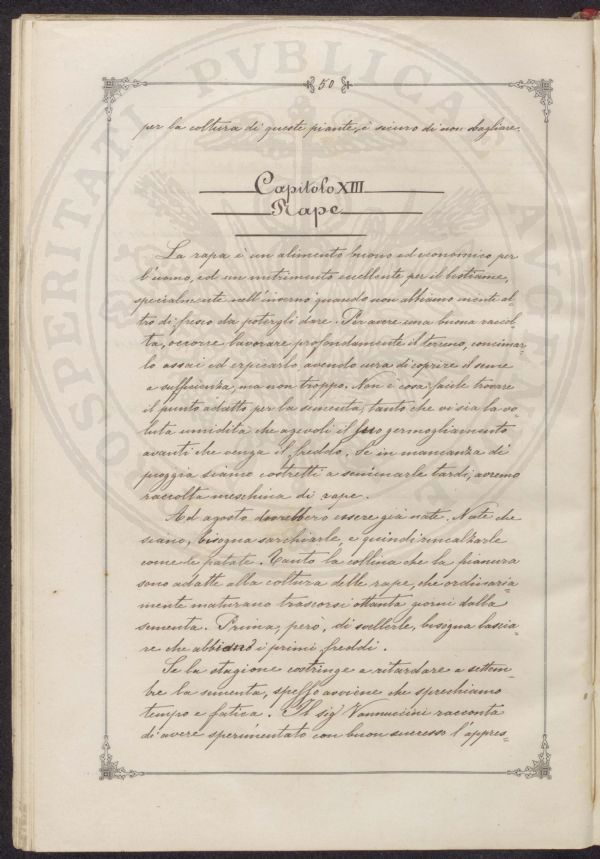 50
per la coltura di queste piante, è sicuro di non sbagliare.
Capitolo XIII
Rape
La rapa è un alimento buono ed economico per
l'uomo, ed un nutrimento eccellente per il bestiame,
specialmente nell'inverno quando non abbiamo niente al-
tro di fresco da potergli dare. Per avere una buona raccol-
ta, occorre lavorare profondamente il terreno, concimar-
lo assai ed erpicarlo avendo cura di coprire il seme
a sufficienza, ma non troppo. Non è cosa facile trovare
il punto adatto per la sementa, tanto che vi sia la vo-
luta umidità che agevoli il suo germogliamento
avanti che venga il freddo. Se in mancanza di
pioggia siamo costretti a seminarle tardi, avremo
raccolta meschina di rape.
Ad agosto dovrebbero essere già nate. Nate che
siano, bisogna sarchiarle, e quindi rincalzarle
come le patate. Tanto la collina che la pianura
sono adatte alla coltura delle rape, che ordinaria-
mente maturano trascorsi ottanta giorni dalla
sementa. Prima, però, di svellerle, bisogna lascia-
re che abbiano i primi freddi.
Se la stagione costringe a ritardare a settem-
bre la sementa, spesso avviene che sprechiamo
tempo e fatica. Il sig Vannuccini racconta
di avere sperimentato con buon successo l'appres-
PROSPERITATI PVBLICAE AVGENDAE